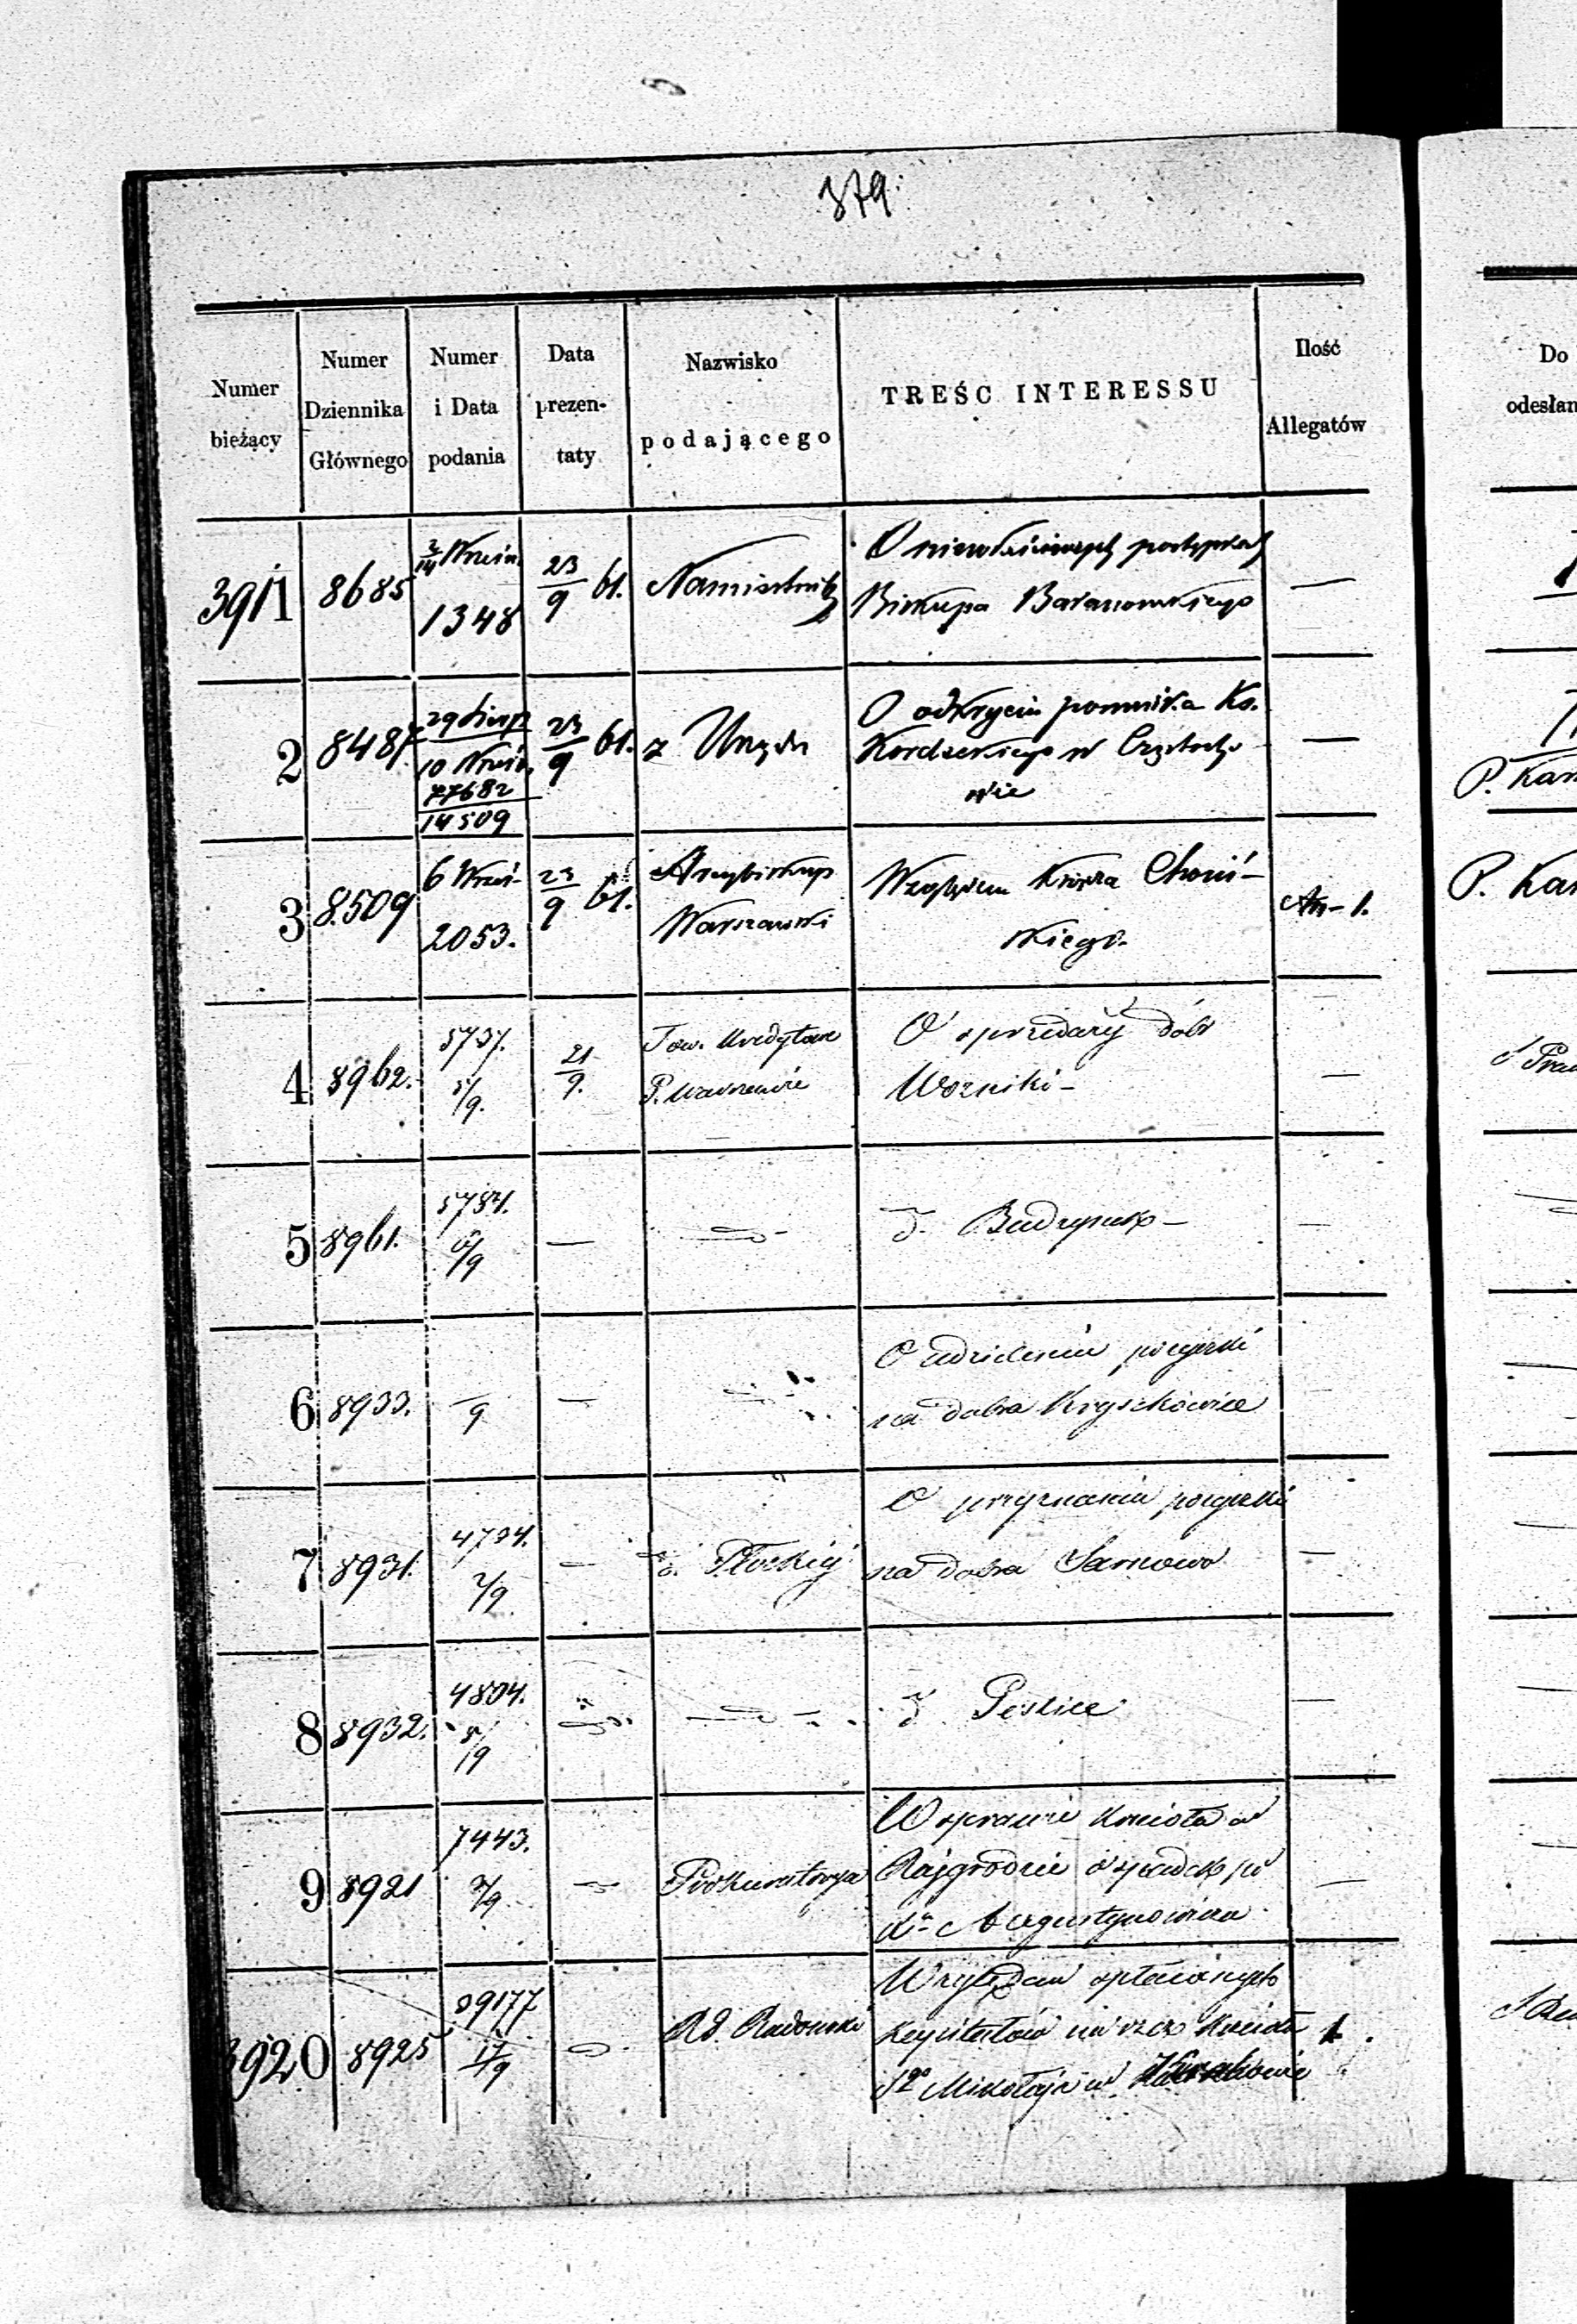 379.
Numer bieżący
Numer Dziennika Głównego
Numer i Data podania
Data prezentaty
Nazwisko podającego
TREŚC INTERESSU
Ilość Allegatów
Do
odesłan
3911
8685
2/14 Wrześn.
1348
23/9 61.
Namiestnik
O niewłaściwych postępkach
Biskupa Baranowskiego
—
2
8487
29 Sierp
10 Wrześ.
77682
14509
23/9 61.
z Urzędu
O odkryciu pomnika Ks.
Kordeckiego w Częstocho
wie
—
P. Kar
3
8509
6 Wrześ-
2053.
23/9 61.
Arcybiskup
Warszawski
Względem Księdza
skiego.
An-1.
P. Kar
4
8962.
5737.
5/9.
21/9.
Tow. Kredytowe
P. Warszawie
O sprzedaży dóbr
Wozniki-
—
5
8961.
/9
—
d. Budzynek-
—
6
8933.
9
—
O udzieleniu pożyczki
na dobra
7
8931.
4704.
7/9
—
d. Płockiej
O przyznaniu pożyczki
na dobra Sarnowo
—
8
8932.
4804.
5/9
d.
—
9
8921
7443.
/9
Prokuratorya
W sprawie Kościoła w
Rajgrodzie o spadek po
Ks. Augustynowicza
—
3920
8925
09177
17/9
Rd. Radomski
Względem
Kapitałów na rzecz Kościoła
Sgo Mikołaja w Krakowie
1.